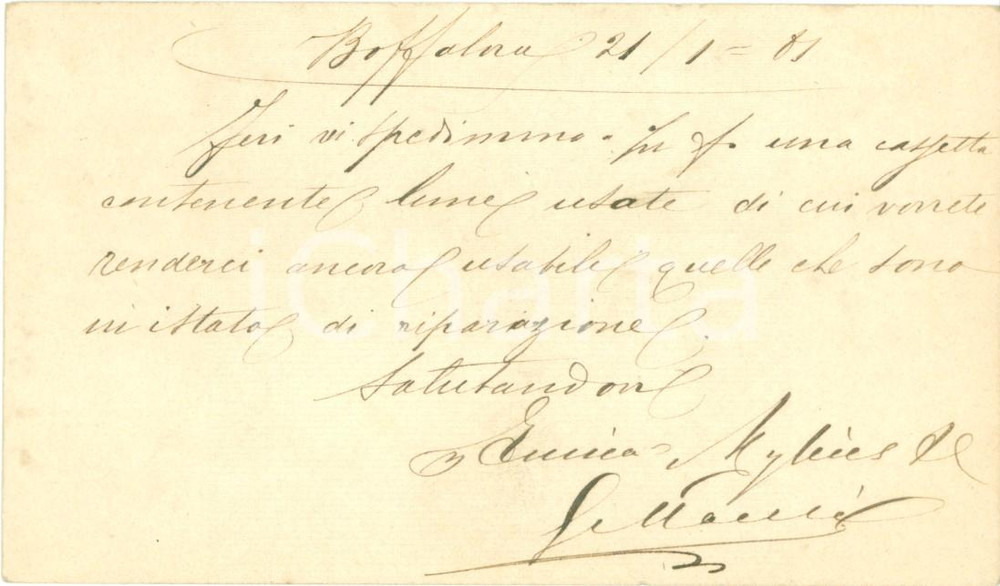 Boffalora 21/1 = 81
Jeri vi spedimmo in una cassetta
contenente lime usate di cui vorrete
renderci ancora usabili quelle che sono
in istato di riparazione.
Salutandovi
Mylius &
iCharta